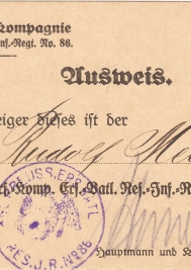 Kompagnie
Inf.-Regt. No. 86.
Ausweis.
eiger dieses ist der
Rudolf
Komp. Ers.-Batl. Res.-Inf.-R
ERS. BATL.
RES. J. R. No 86
Hauptmann und K